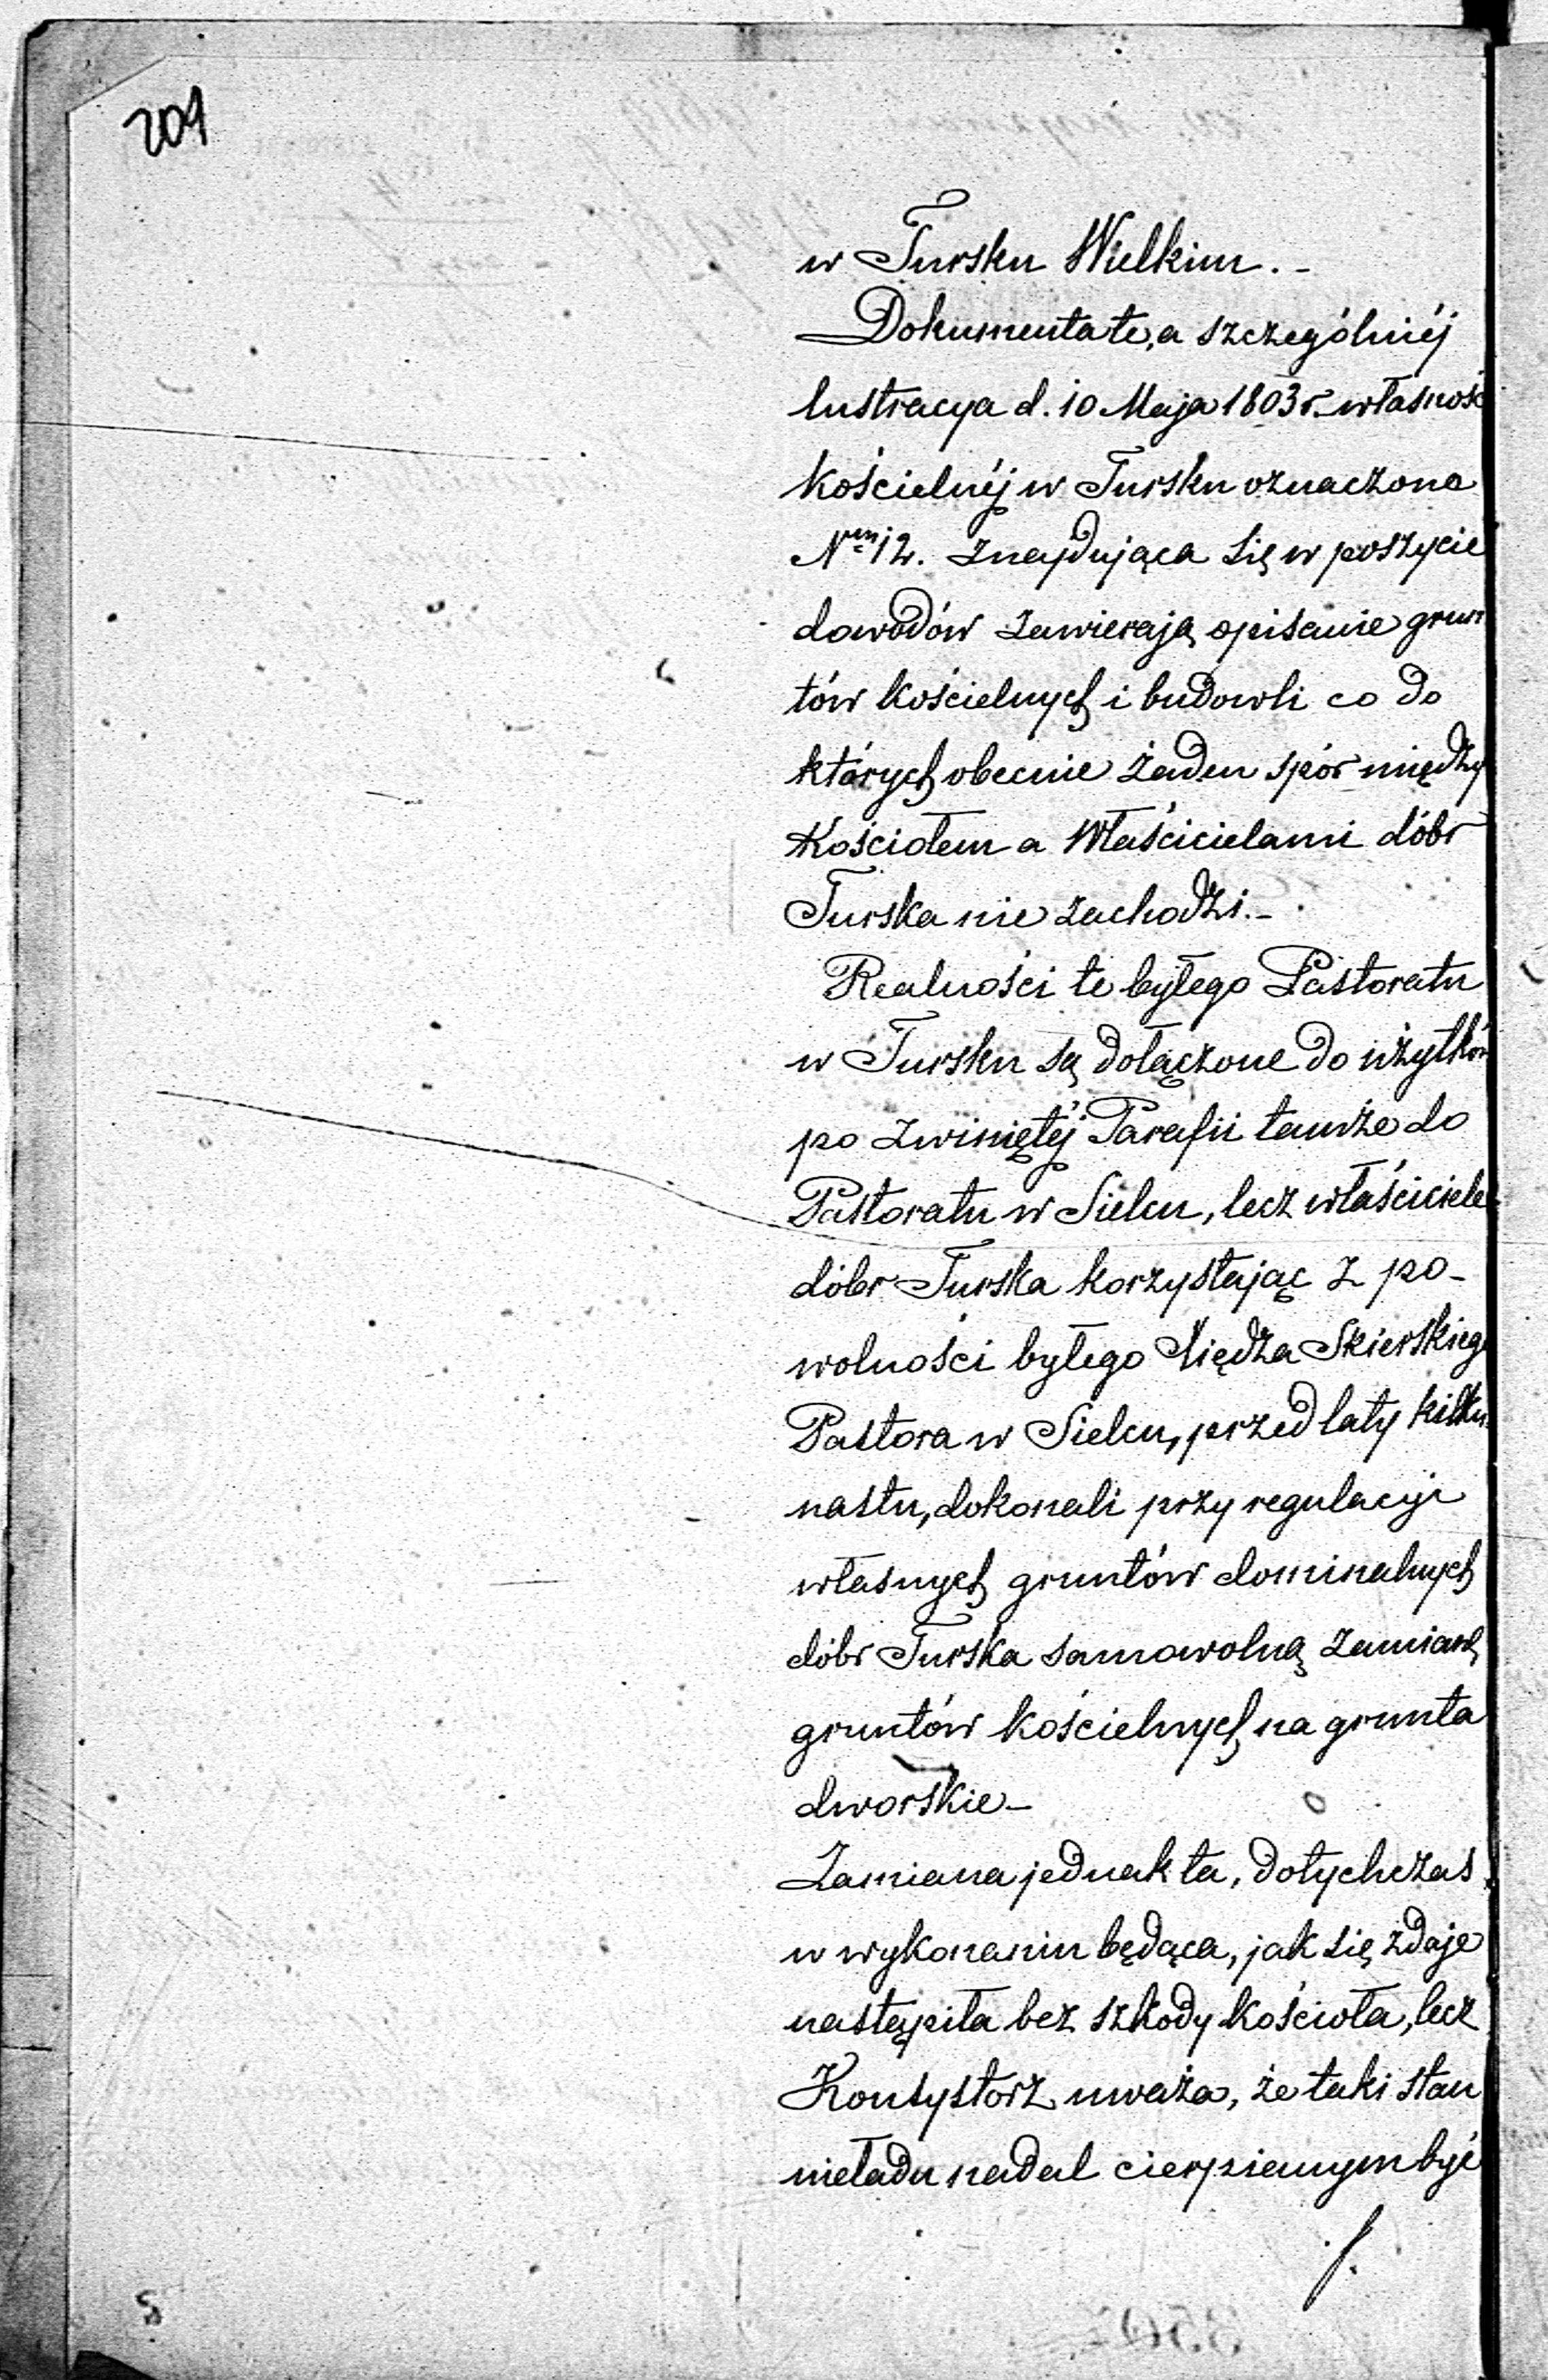 209
w Tursku Wielkim. -
Dokumenta te, a szczególniéj
lustracya d. 10 Maja 1803 r. własnośc
kościelnéj w Tursku oznaczona
Nrm 12. znajdująca się w poszycie
dowodów zawierają opisanie grun
tów kościelnych i budowli co do
których obecnie żaden spór między
Kościołem a Właścicielami dóbr
Turska nie zachodzi. -
Realności te byłego Pastoratu
w Tursku są dołączone do użytków
po zwiniętéj Parafii tamże do
Pastoratu w Sielcu, lecz właściciele
dóbr Turska korzystając z po-
wolności byłego Xiędza Skierskiego
Pastora w Sielcu, przed laty kilku
nastu, dokonali przy regulacyi
własnych gruntów dominalnych
dóbr Turska samowolną zamianę
gruntów kościelnych na grunta
dworskie -
Zamiana jednak ta, dotychczas
w wykonaniu będąca, jak się zdaje
nastąpiła bez szkody kościoła, lecz
Konsystorz uważa, że taki stan
nieładu nadal cierpianym być